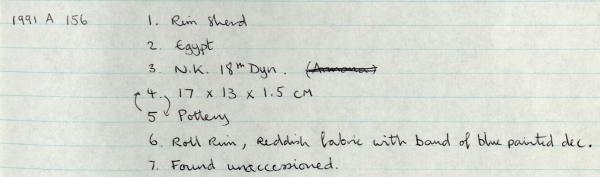 1991 A 156 1. Rim Sherd
2. Egypt
3. N.K. 18th Dyn. (Amarna)
4. 17 x 13 x 1.5 cM
5 Pottery
6. Roll Rim, Reddish fabric with band of blue painted dec.
7. Found unaccessioned.